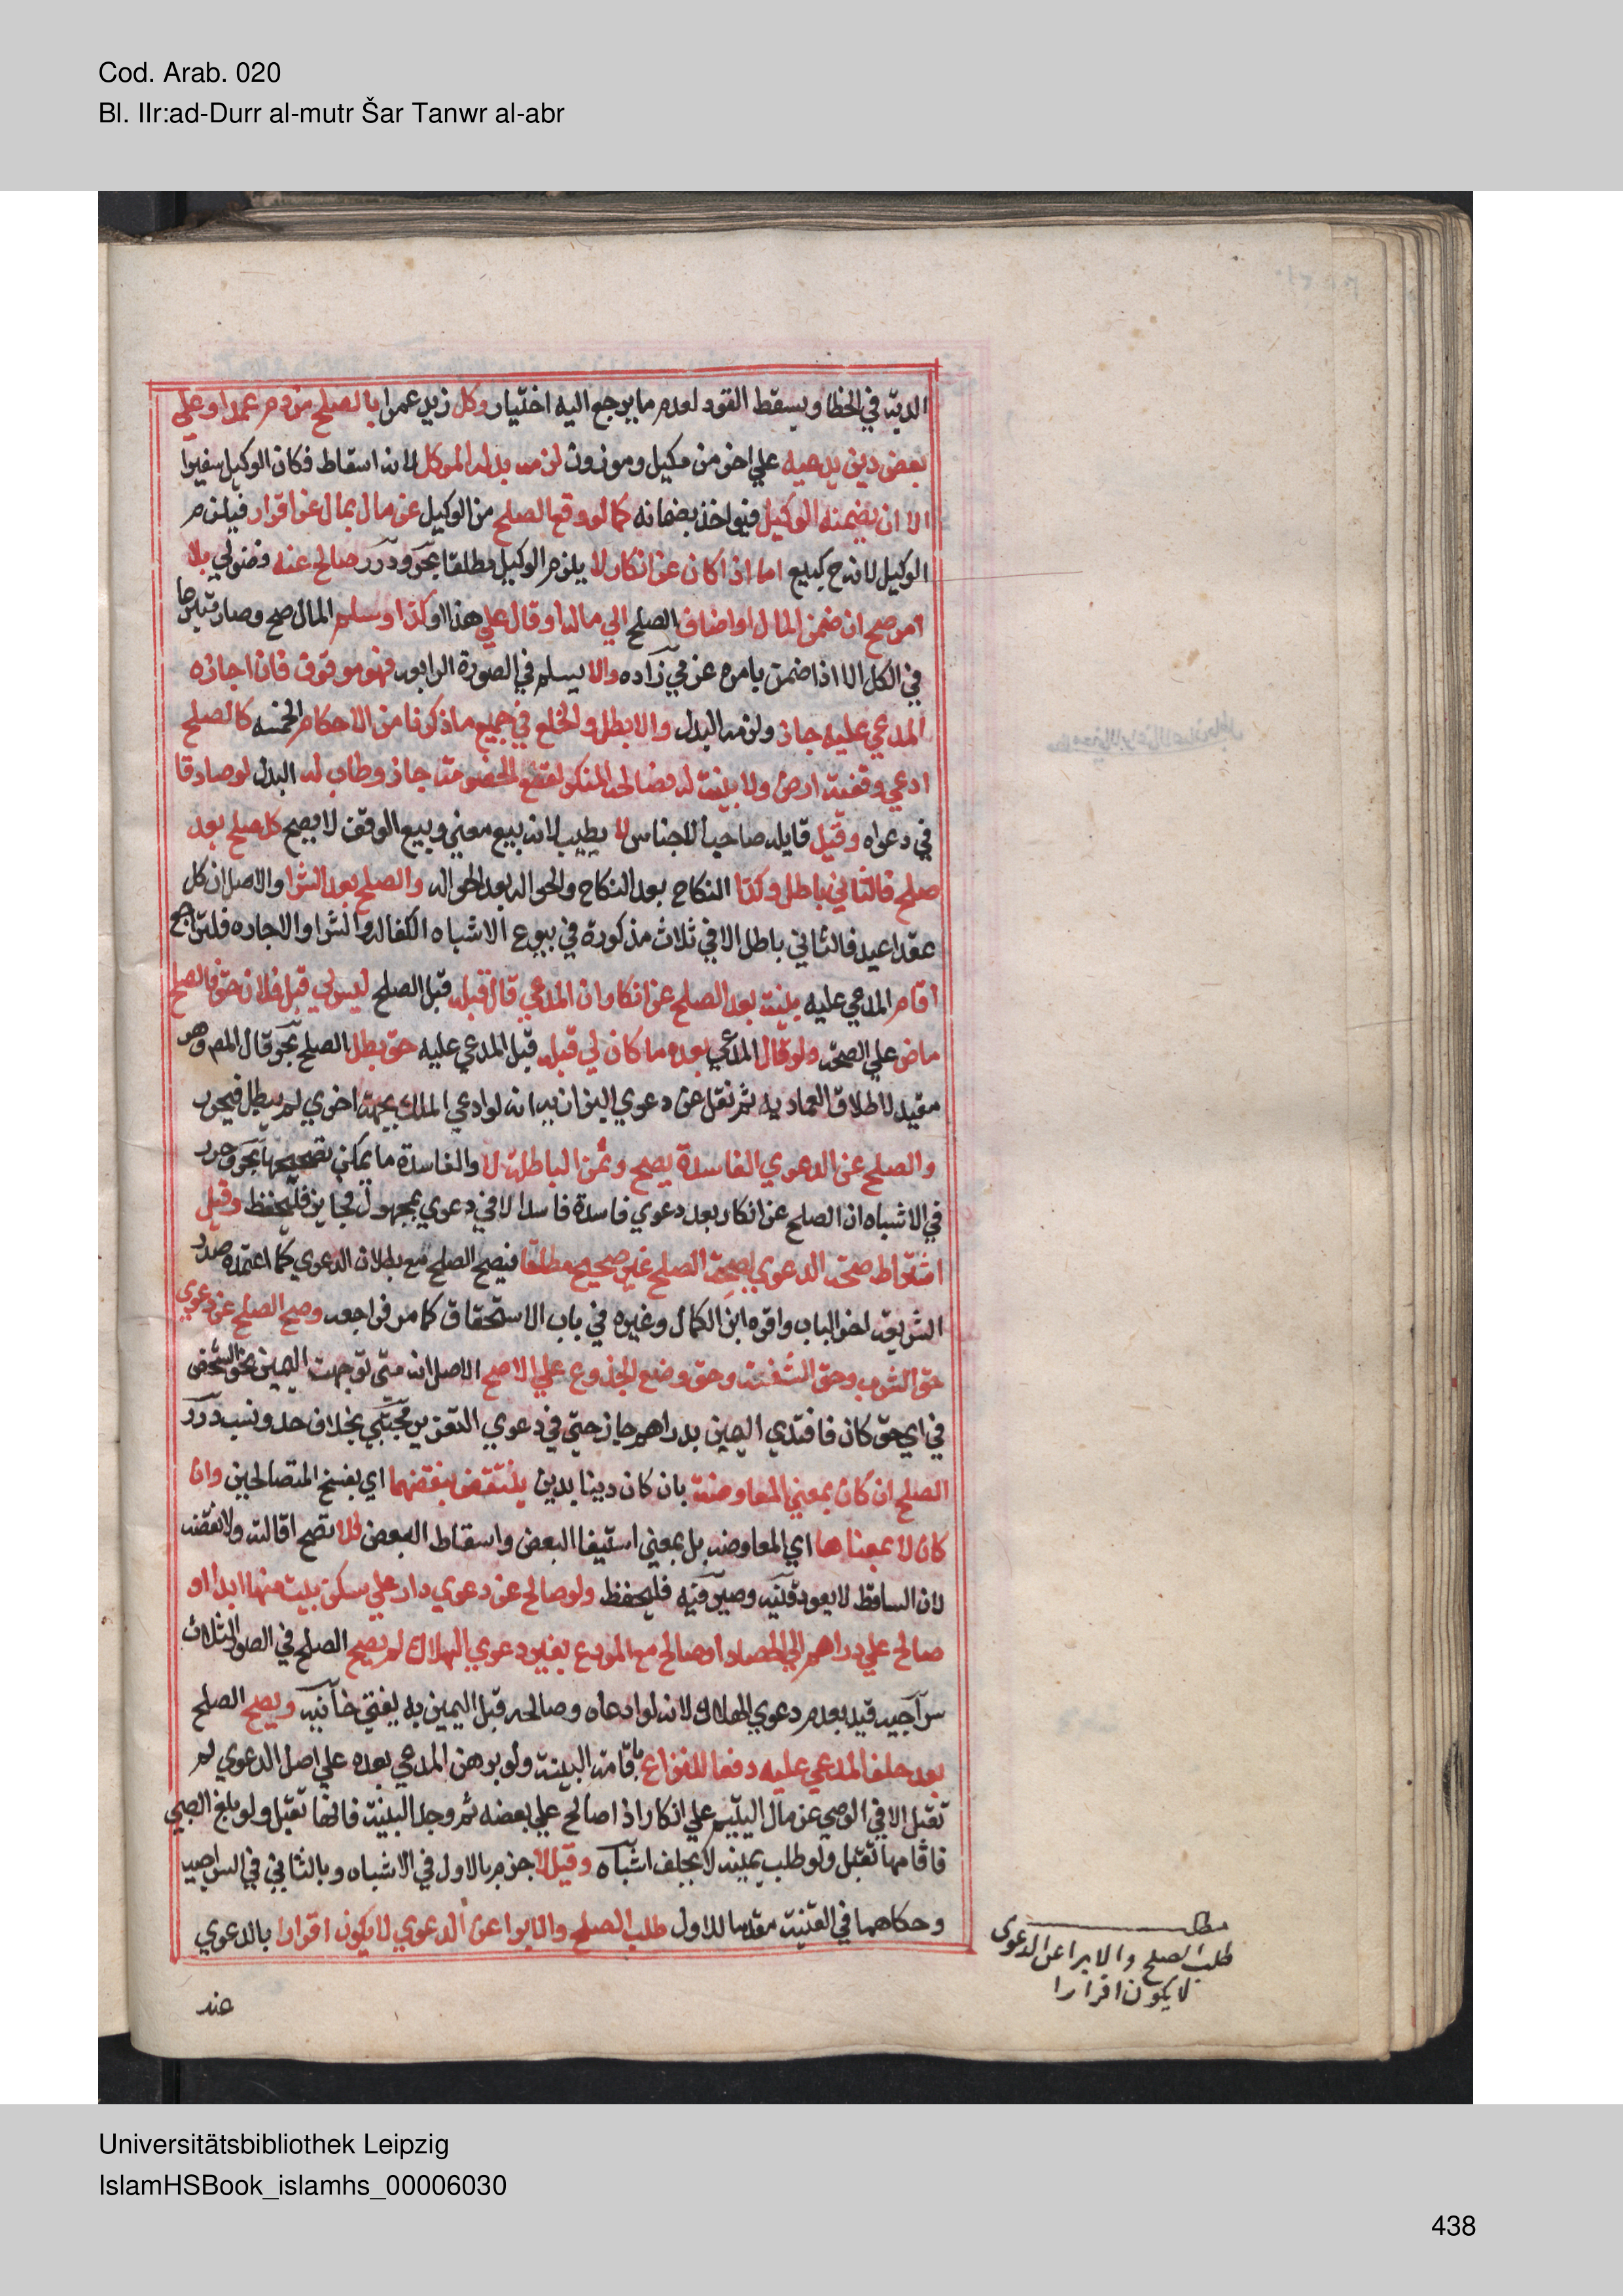 Cod. Arab. 020
Bl. IIr:ad-Durr al-mutr Šar Tanwr al-abr
الدية في الخطا ويسقط القود لعدم ما يرجع اليه اختيار وكل زيد عمرا بالصلح من دم عمد او علي
بعض دين يدعيه علي اخر من مكيل وموزون لزمه بدله الموكل لانه اسقاط فكان الوكيل سفيرا
الا ان يضمنه الوكيل فيواخذ بضمانه كما لو وقع الصلح من الوكيل عن مال بمال عن اقرار فيلزم
الوكيل لانه ح كبيع اما اذا كان عن انكار لا يلزم الوكيل مطلقا بحر ودرر صالح عنه فضولي بلا
امر صح ان ضمن المال او اضاف الصلح الي ماله او قال علي هذا او كذا وسلم المال صح وصار متبرعا
في الكل الا اذا ضمن بامره عزمي زاده والا يسلم في الصورة الرابعه فهو موقوف فان اجازه
المدعي عليه جاز ولزمه البدل والا بطل والخلع في جميع ما ذكرنا من الاحكام الخمسه كالصلح
ادعي وقفية ارض ولا بينة له فصالحه المنكر لقطع الخصومة جاز وطاب له البدل لو صادقا
في دعواه وقيل قايله صاحب الاجناس لا يطيب لانه بيع معني وبيع الوقف لا يصح كل صلح بعد
صلح فالثاني باطل وكذا النكاح بعد النكاح والحواله بعد الحواله والصلح بعد الشرا والاصل ان كل
عقد اعيد فالثاني باطل الا في ثلاث مذكورة في بيوع الاشباه الكفاله والشرا والاجاره فلتراجع
اقام المدعي عليه بينة بعد الصلح عن انكار ان المدعي قال قبله قبل الصلح ليس لي قبل فلان حق فالصلح
ماض علي الصحه ولو قال المدعي بعده ما كان لي قبله قبل المدعي عليه حق بطل الصلح بحر قال المص وهو
مقيد لاطلاق العماديه ثم نقل عن دعوي البزازيه انه لو ادعي الملك بجهة اخري لم يبطل فيحرر
والصلح عن الدعوي الفاسدة يصح وعن الباطلة لا والفاسدة ما يمكن تصحيحها بحر وحرر
في الاشباه ان الصلح عن انكار بعد دعوي فاسدة فاسد الا في دعوي بمجهول فجايز فليحفظ وقيل
اشتراط صحة الدعوي لصحة الصلح غير صحيح مطلقا فيصح الصلح مع بطلان الدعوي كما اعتمده صدر
الشريعه اخر الباب واقره ابن الكمال وغيره في باب الاستحقاق كما مر فراجعه وصح الصلح عن دعوي
حق الشرب وحق الشفعة وحق وضع الجذوع علي الاصح الاصل انه متي توجهت اليمين نحو الشخص
في اي حق كان فافتدي اليمين بدراهم جاز حتي في دعوي التعزير مجتبي بخلاف حد ونسب درر
الصلح ان كان بمعني المعاوضة بان كان دينا بدين ينتقض بنقضهما اي بفسخ المتصالحين وان
كان لا بمعناها اي المعاوضه بل بمعني استيفا البعض واسقاط البعض فلا تصح اقالته ولا نقضه
لان الساقط لا يعود قنيه وصيرفيه فليحفظ ولو صالح عن دعوي دار علي سكني بيت منها ابدا او
صالح علي دراهم الي الحصاد او صالح مع المودع بغير دعوي الهلاك لم يصح الصلح في الصور الثلاث
سراجيه قيد بعدم دعوي الهلاك لانه لو ادعاه وصالحه قبل اليمين به يفتي خانيه ويصح الصلح
بعد حلف المدعي عليه دفعا للنزاع باقامة البينة ولو برهن المدعي بعده علي اصل الدعوي لم
تقبل الا في الوصي عن مال اليتيم علي انكار اذا صالح علي بعضه ثم وجد البينة فانها تقبل ولو بلغ الصبي
فاقامها تقبل ولو طلب يمينه لا يحلف اشباه وقيل لا جزم بالاول في الاشباه وبالثاني في السراجيه
وحكاهما في القنية مقدما للاول طلب الصلح والابرا عن الدعوي لا يكون اقرارا بالدعوي
عند
مطلب
طلب الصلح والابرا عن الدعوى
لا يكون اقرارا
Universitätsbibliothek Leipzig
IslamHSBook_islamhs_00006030
438